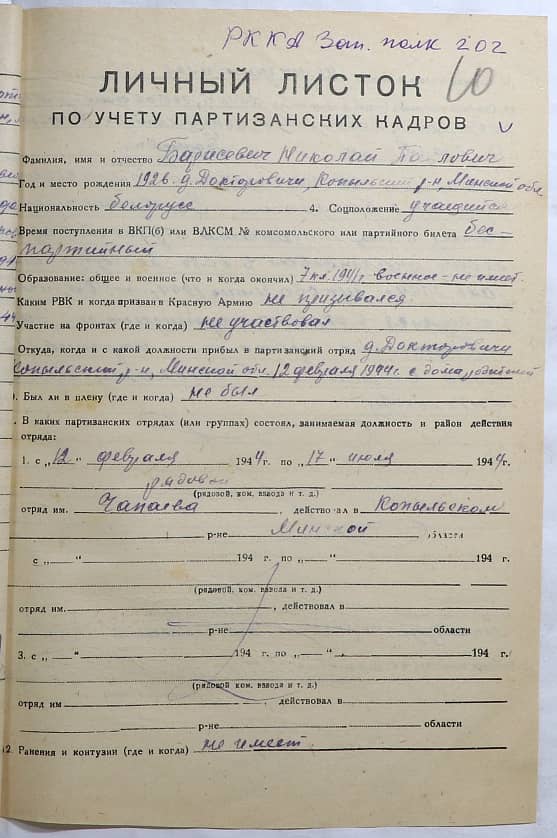 РККА Зап. полк 202
10
ЛИЧНЫЙ ЛИСТОК
ПО УЧЕТУ ПАРТИЗАНСКИХ КАДРОВ
Фамилия, имя и отчество Барисевич Николай Павлович
Год и место рождения 1926 д. Докторовичи, Копыльский р-н, Минской обл
Национальность белорусс 4. Соцположение учащийся
Время поступления в ВКП(б) или ВЛКСМ № комсомольского или партийного билета бес-
партийный
Образование: общее и военное (что и когда окончил) 7 кл. 1941 г военное - не имеет.
Каким РВК и когда призван в Красную Армию не призывался
Участие на фронтах (где и когда) не участвовал
Откуда, когда и с какой должности прибыл в партизанский отряд д. Докторовичи
Копыльский р-н, Минской обл. 12 февраля 1944 г. с дома родителей
. Был ли в плену (где и когда) не был
. В каких партизанских отрядах (или группах) состоял, занимаемая должность и район действия
отряда:
1. с „12“ февраля 1944 г. по „17“ июля 1944 г.
рядовой
(рядовой, ком. взвода и т. д.)
отряд им. Чапаева, действовал в Копыльском
р-не Минской области
с „ “ 194 г. по „ “ 194 г.
(рядовой, ком. взвода и т. д.)
отряд им. , действовал в
р-не области
3. с „ “ 194 г. по „ “ 194 г.
(рядовой, ком. взвода и т. д.)
отряд им , действовал в
р-не области
2. Ранения и контузии (где и когда) не имеет.